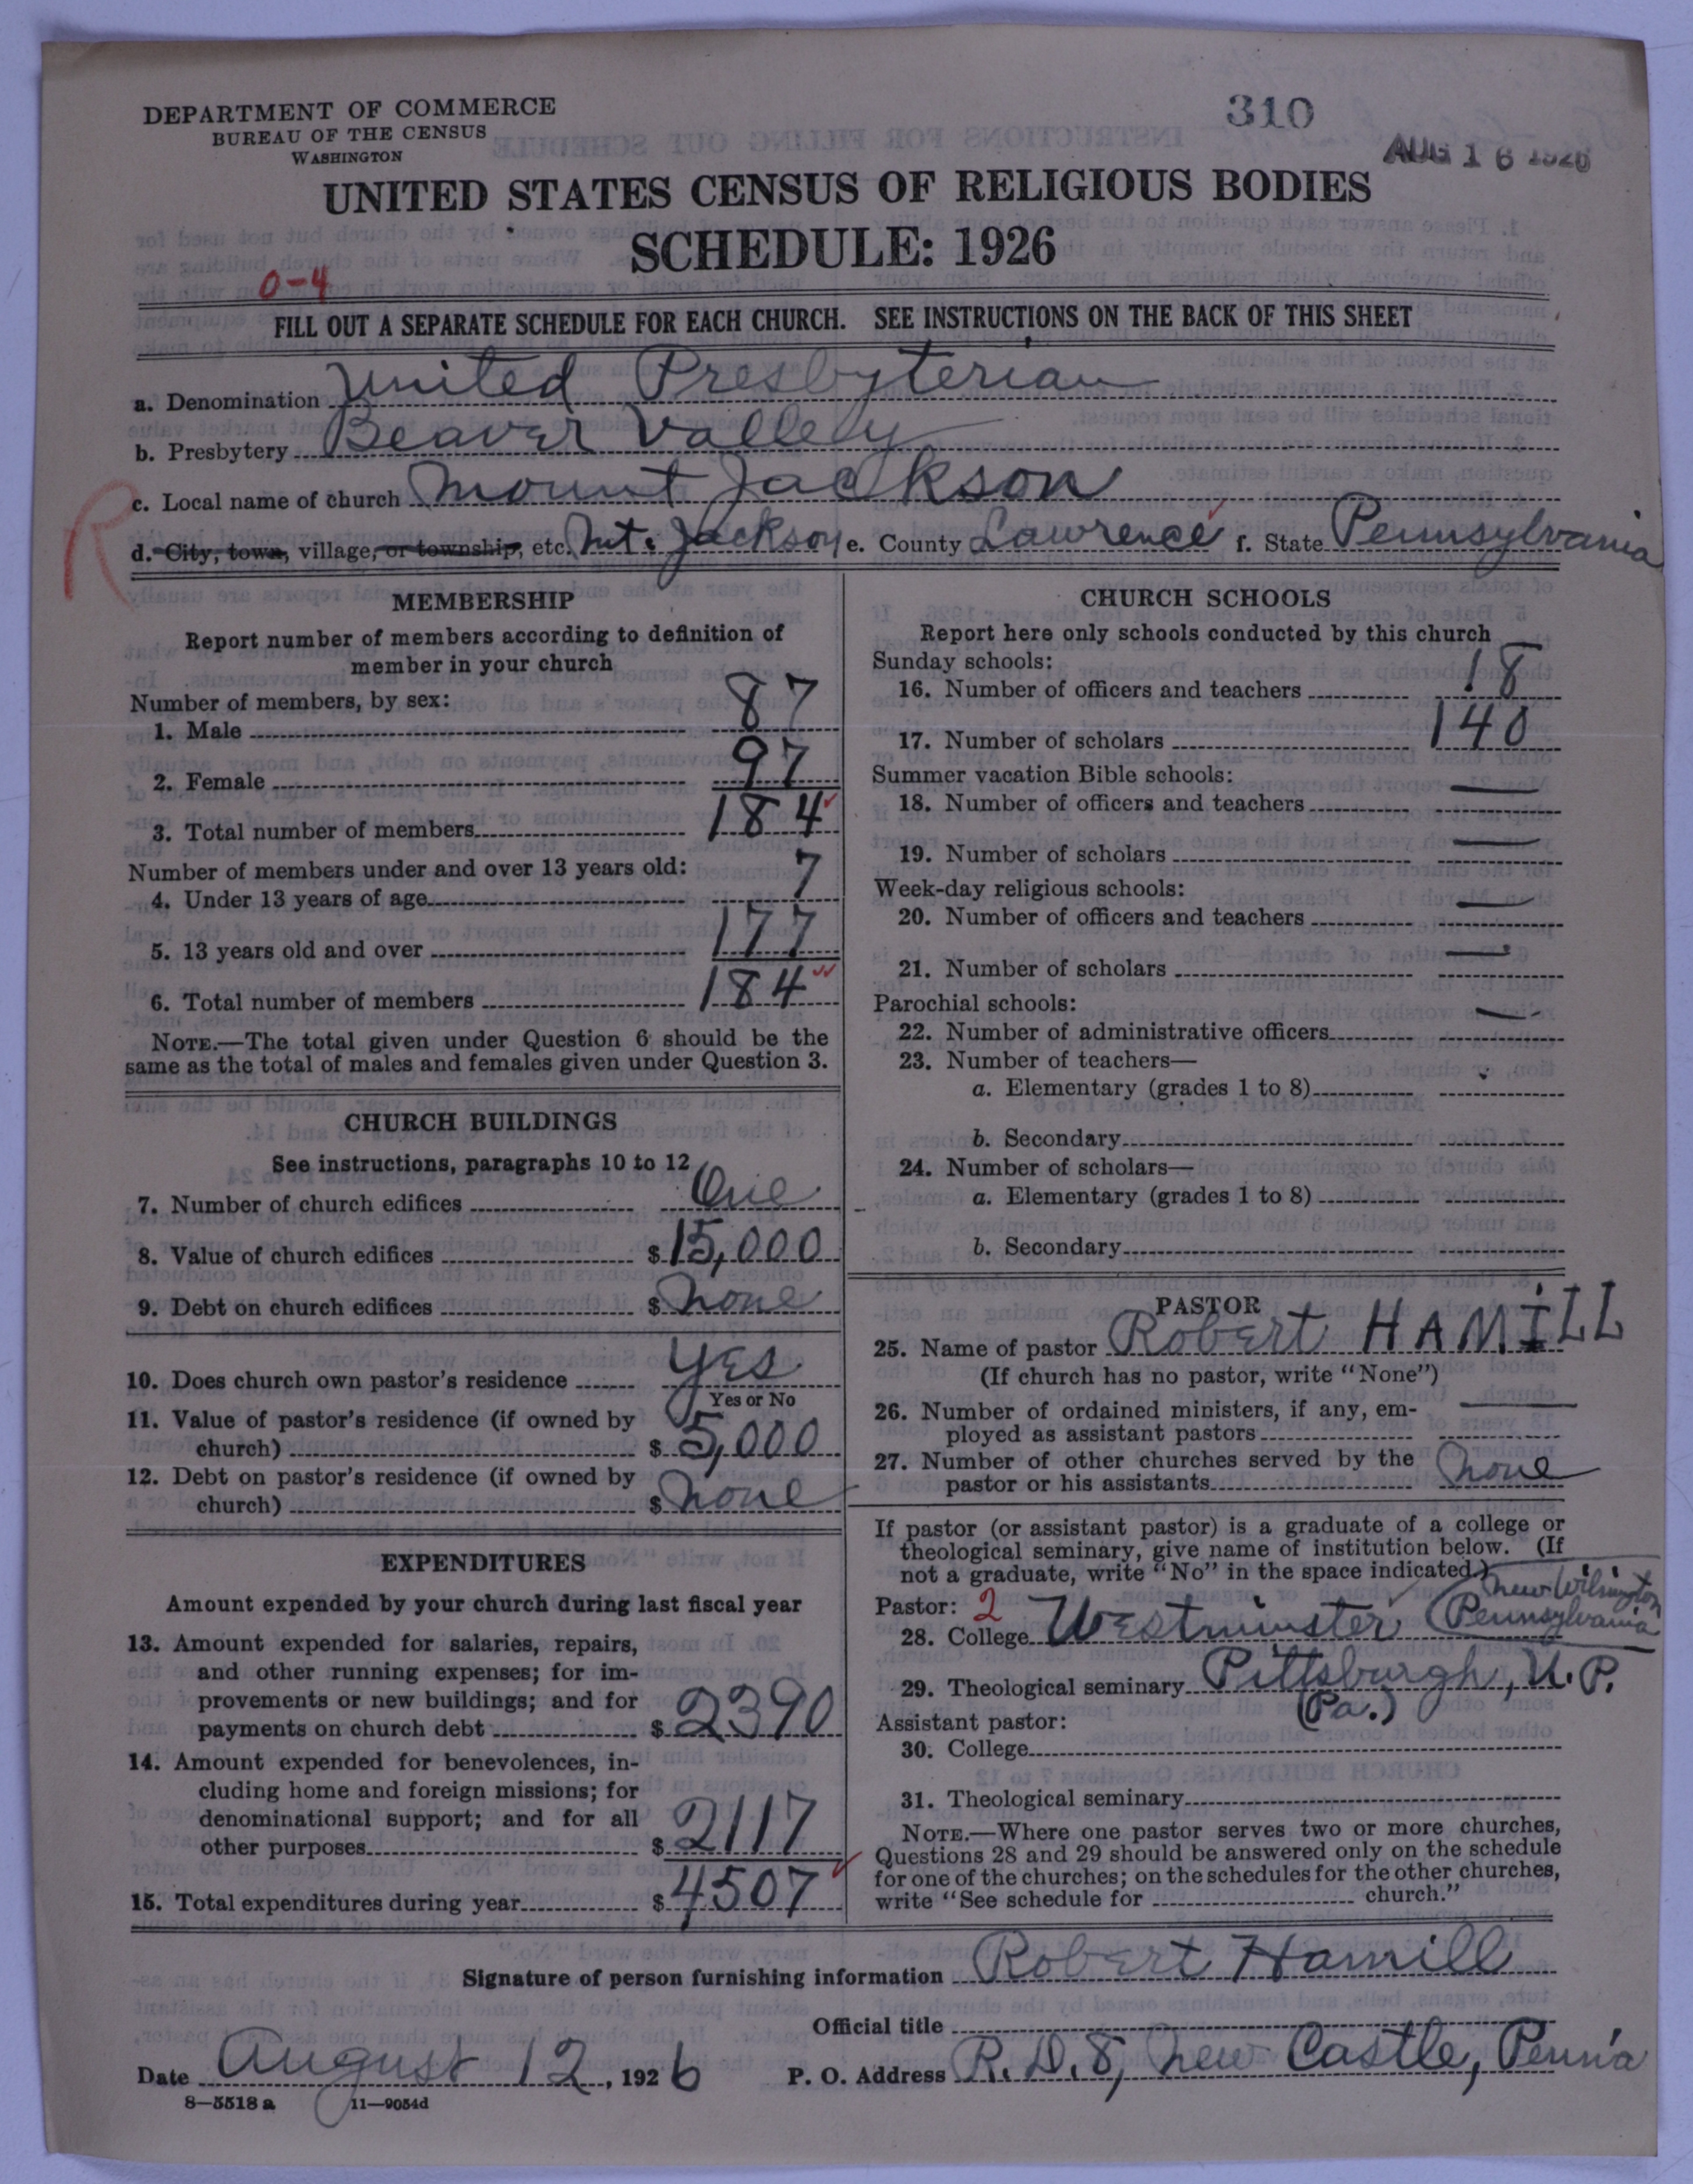 310
AUG 16 1926
DEPARTMENT OF COMMERCE
BUREAU OF THE CENSUS
WASHINGTON
UNITED STATES CENSUS OF RELIGIOUS BODIES
SCHEDULE: 1926
0-4
FILL OUT A SEPARATE SCHEDULE FOR EACH CHURCH. SEE INSTRUCTIONS ON THE BACK OF THIS SHEET
a. Denomination United Presbyterian
b. Presbytery Beaver Valley
R
c. Local name of church Mount Jackson
d. City, town, village, or township, etc. Mt. Jackson e. County Lawrence f. State Pennsylvania
MEMBERSHIP
Report number of members according to definition of
member in your church
Number of members, by sex:
1. Male 87
2. Female 97
3. Total number of members 184
Number of members under and over 13 years old:
4. Under 13 years of age 7
5. 13 years old and over 177
6. Total number of members 184
NOTE.—The total given under Question 6 should be the
same as the total of males and females given under Question 3.
CHURCH BUILDINGS
See instructions, paragraphs 10 to 12
7. Number of church edifices One
8. Value of church edifices $ 15,000
9. Debt on church edifices $ None
10. Does church own pastor's residence Yes
Yes or No
11. Value of pastor's residence (if owned by
church) $ 5,000
12. Debt on pastor's residence (if owned by
church) $ None
EXPENDITURES
Amount expended by your church during last fiscal year
13. Amount expended for salaries, repairs,
and other running expenses; for im-
provements or new buildings; and for
payments on church debt $ 2390
14. Amount expended for benevolences, in-
cluding home and foreign missions; for
denominational support; and for all
other purposes $ 2117
15. Total expenditures during year $ 4507
CHURCH SCHOOLS
Report here only schools conducted by this church
Sunday schools:
16. Number of officers and teachers 18
17. Number of scholars 140
Summer vacation Bible schools:
18. Number of officers and teachers —
19. Number of scholars —
Week-day religious schools:
20. Number of officers and teachers —
21. Number of scholars —
Parochial schools:
22. Number of administrative officers —
23. Number of teachers—
a. Elementary (grades 1 to 8)
b. Secondary
24. Number of scholars—
a. Elementary (grades 1 to 8)
b. Secondary
PASTOR
25. Name of pastor Robert HAMILL
(If church has no pastor, write "None")
26. Number of ordained ministers, if any, em-
ployed as assistant pastors —
27. Number of other churches served by the
pastor or his assistants None
If pastor (or assistant pastor) is a graduate of a college or
theological seminary, give name of institution below. (If
not a graduate, write "No" in the space indicated.)
Pastor: 2 New Wilmington
28. College Westminster (Pennsylvania
29. Theological seminary Pittsburgh, U.P.
(Pa.)
Assistant pastor:
30. College
31. Theological seminary
NOTE.—Where one pastor serves two or more churches,
Questions 28 and 29 should be answered only on the schedule
for one of the churches; on the schedules for the other churches,
write "See schedule for church."
Signature of person furnishing information Robert Hamill
Official title
Date August 12, 1926 P. O. Address R.D.8, New Castle, Penn'a
8—5518 a 11—9054d